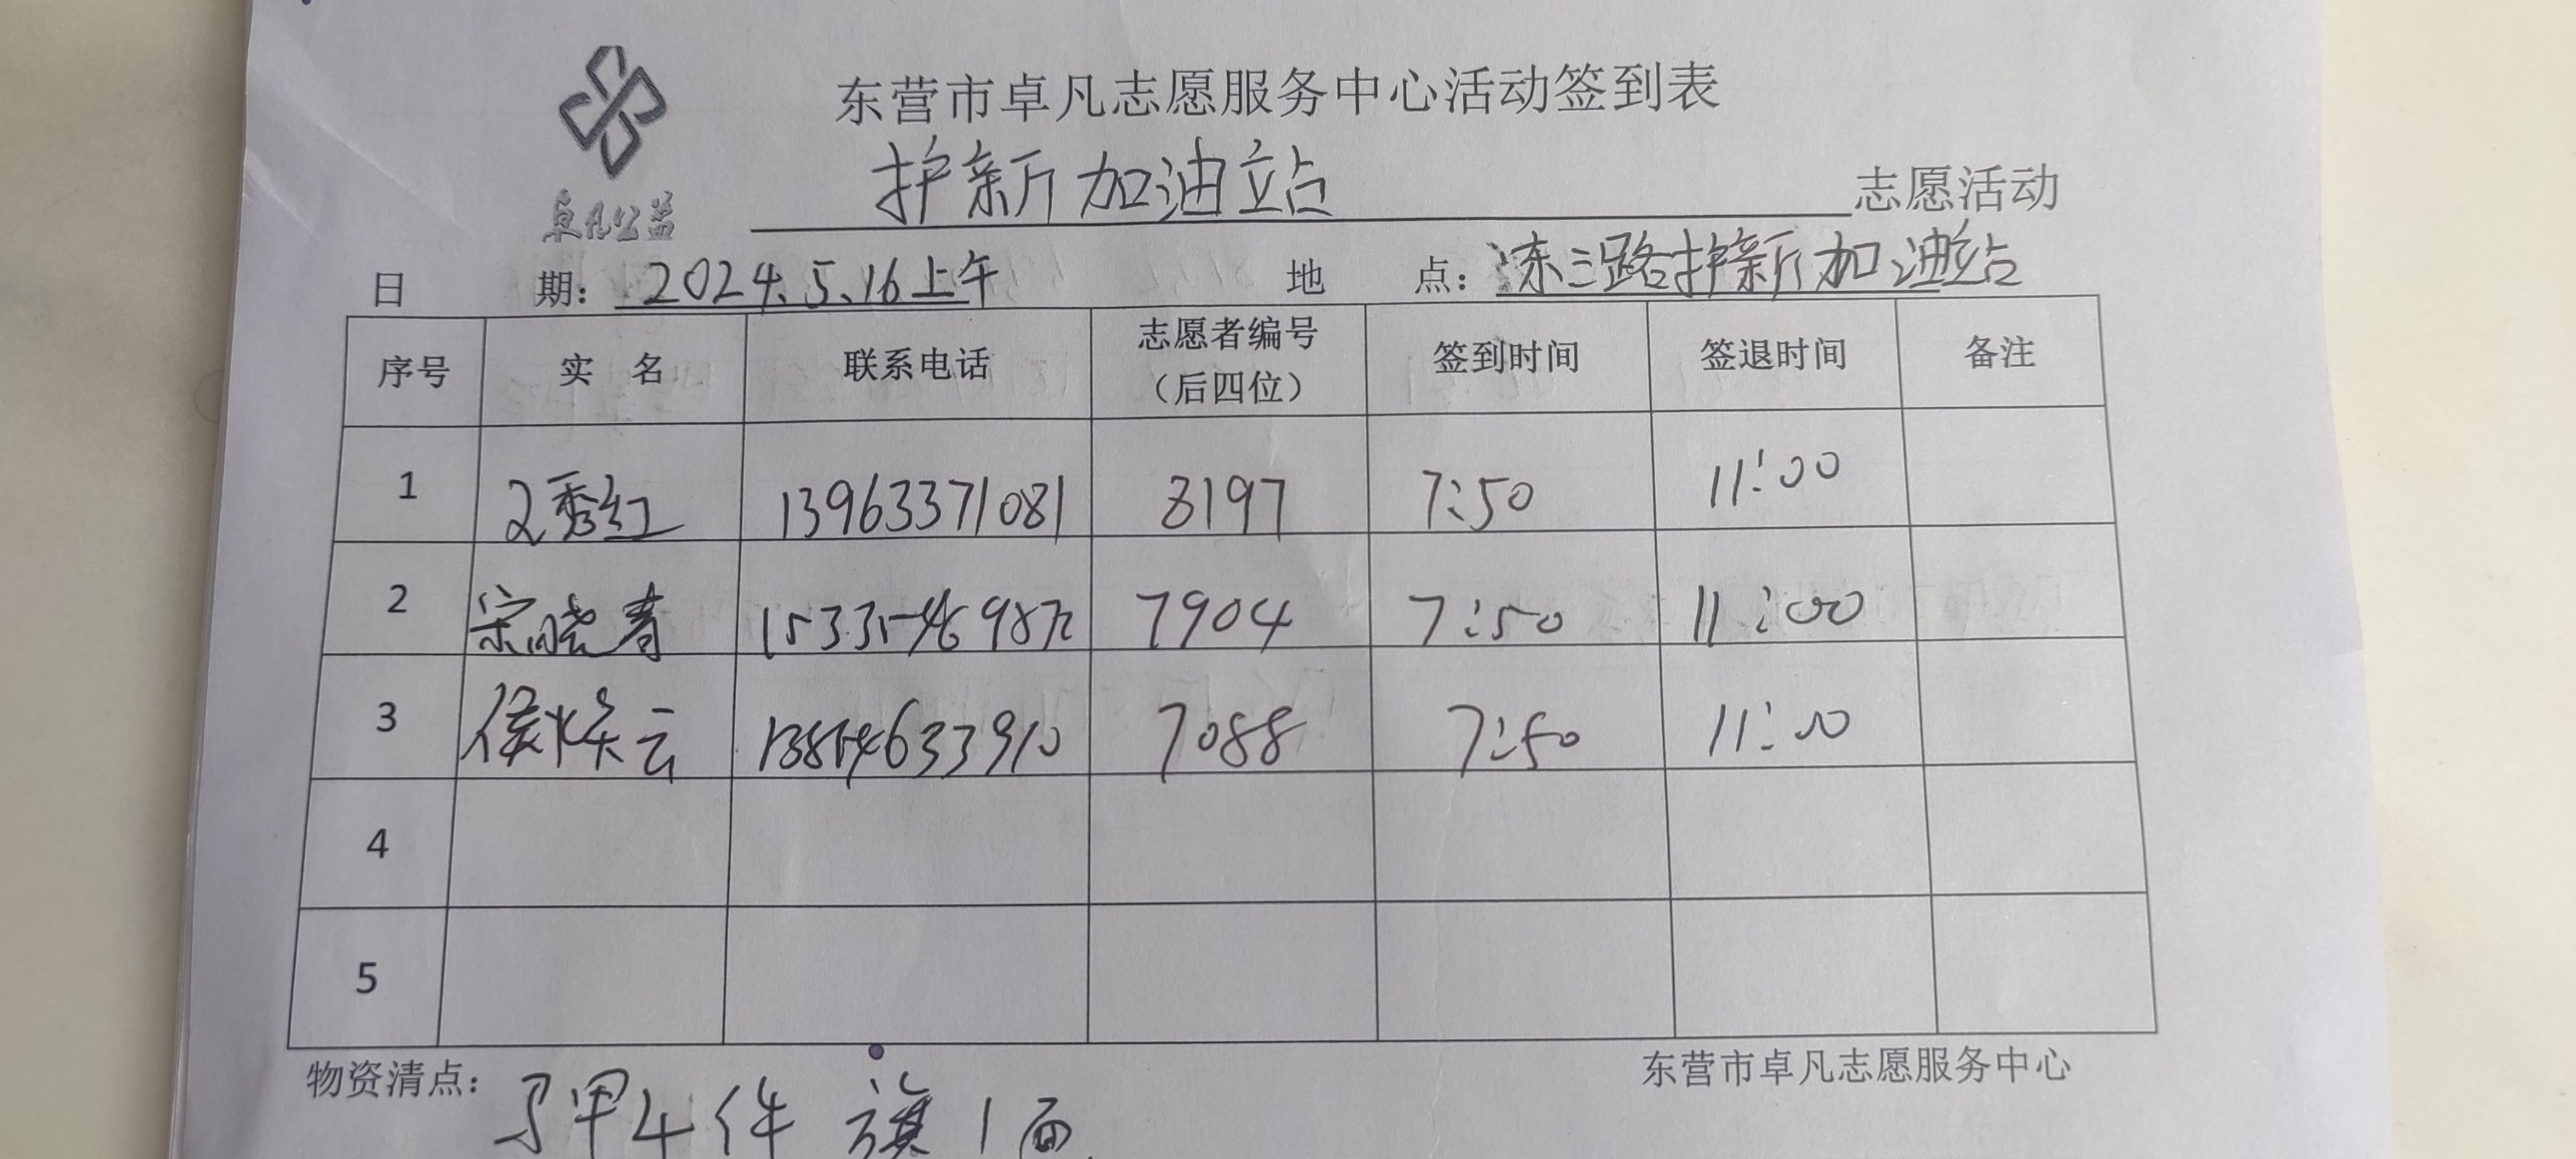 东营市卓凡志愿服务中心活动签到表
护新加油站 志愿活动
卓凡公益
日 期： 2024.5.16上午 地 点： 东三路护新加油站
序号 实 名 联系电话 志愿者编号（后四位） 签到时间 签退时间 备注
1 秀红 13963371081 8197 7:50 11:00
2 宋晓春 7904 7:50 11:00
3 侯焕云 13854633910 7088 7:50 11:00
4
5
物资清点： 马甲4件 旗1面
东营市卓凡志愿服务中心